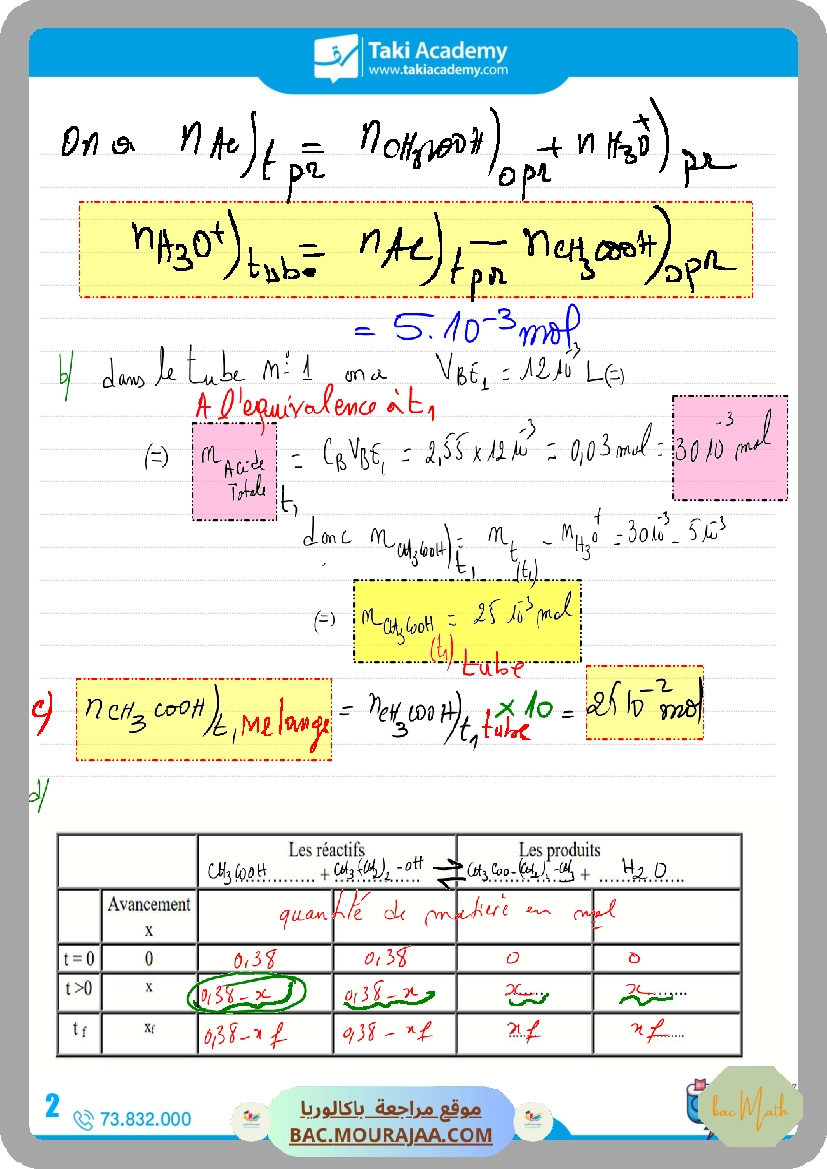 Taki Academy
www.takiacademy.com
On a nAc)t pr = nCH3COOH)0pr + nH3O+)pr
nH3O+)tub. = nAc)t pr - nCH3COOH)0pr
= 5.10⁻³ mol
b/ dans le tube n°: 1 on a VBE1 = 12 10⁻³ L (=)
A l'equivalence à t1
(=) n Acide Totale t1 = CB VBE1 = 2,55 x 12 10⁻³ = 0,03 mol = 30 10⁻³ mol
donc nCH3COOH)t1 = nt (t1) - nH3O+ = 30 10⁻³ - 5 10⁻³
(=) nCH3COOH (t1) = 25 10⁻³ mol
tube
c) nCH3COOH)t1 Melange = nCH3COOH)t1 tube x 10 = 25 10⁻² mol
d/
Les réactifs Les produits
CH3COOH + CH3-(CH2)2-OH ⇌ CH3COO-(CH2)2-CH3 + H2O
Avancement x quantité de matière en mol
t = 0 0 0,38 0,38 0 0
t >0 x 0,38 - x 0,38 - x x x
t f xf 0,38 - xf 0,38 - xf xf xf
2 73.832.000
موقع مراجعة باكالوريا
BAC.MOURAJAA.COM
bac Math